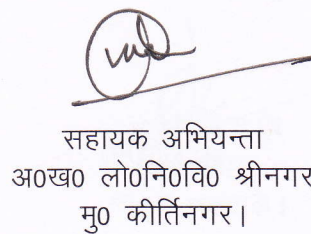 सहायक अभियन्ता
अ0ख0 लो0नि0वि0 श्रीनगर
मु0 कीर्तिनगर।